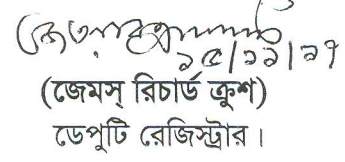 ১৫/১১/১৭
(জেমস্ রিচার্ড ক্রুশ)
ডেপুটি রেজিস্ট্রার ।